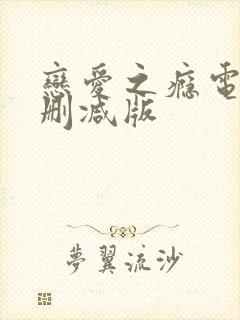 戀愛之癮電
刪減版
夢翼流沙